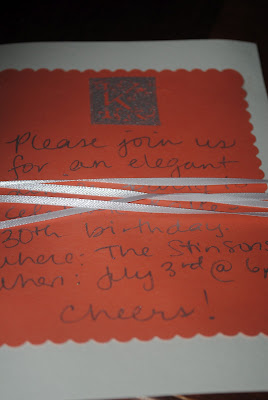 KS
Please join us
for an elegant
30th birthday.
Where: The Stinsons
When: July 3rd @ 6p
Cheers!